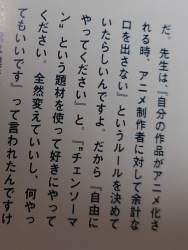 だ、先生は「自分の作品がアニメ化さ
れる時、アニメ制作者に対して余計な
口を出さない」というルールを決めて
いたらしいんですよ。だから『自由に
やってください』と。『"チェンソーマ
ン"という題材を使って好きにやって
ください。全然変えていいし、何やっ
てもいいです』って言われたんですけ